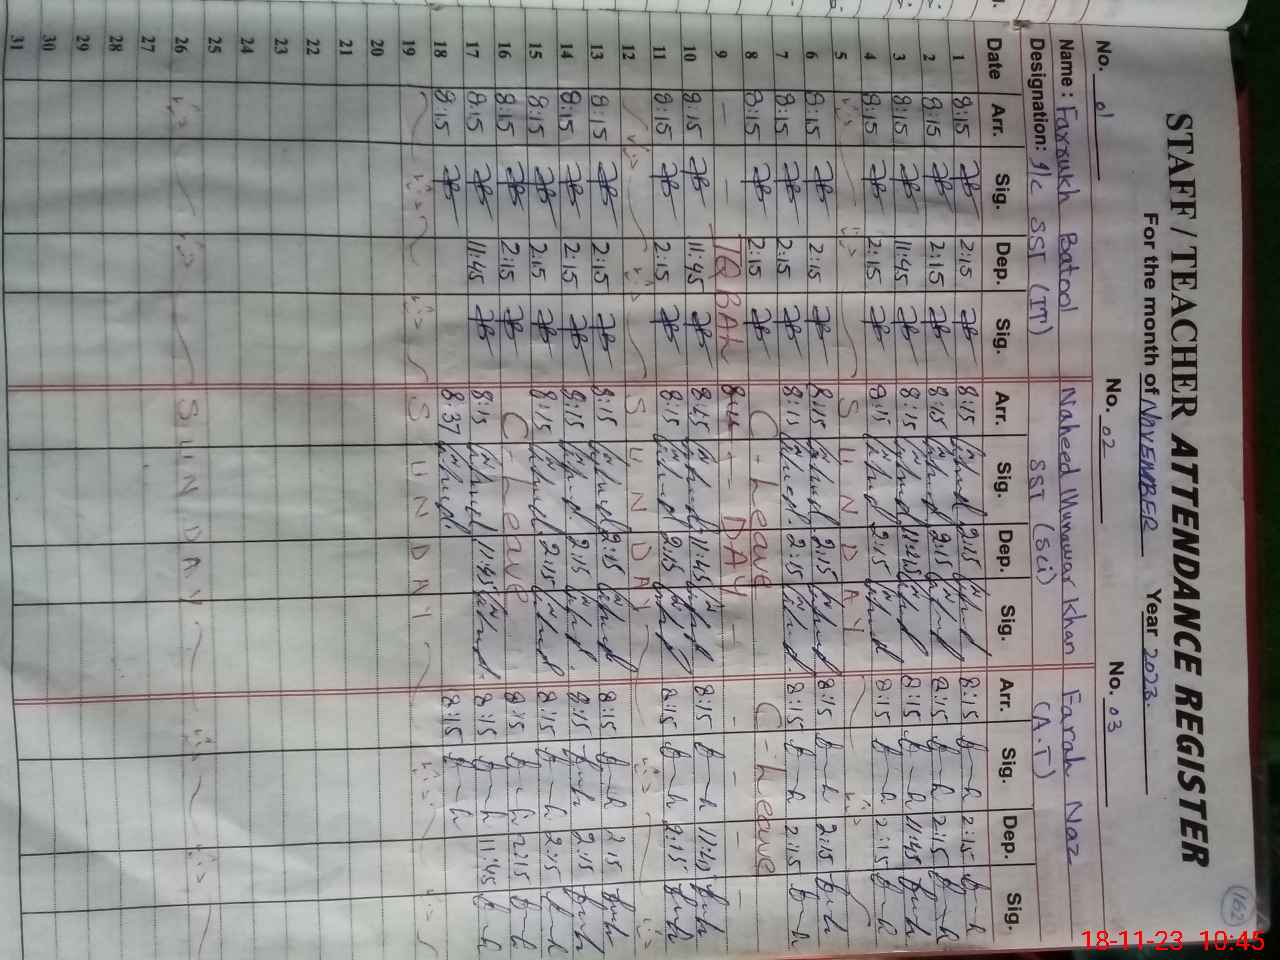 STAFF / TEACHER ATTENDANCE REGISTER
162
For the month of NOVEMBER Year 2023.
No. 01 No. 02 No. 03
Name : Farrukh Batool Naheed Munawar Khan Farah Naz
Designation: I/C SST (IT) SST (Sci) (A.T)
Date Arr. Sig. Dep. Sig. Arr. Sig. Dep. Sig. Arr. Sig. Dep. Sig.
1 8:15 2:15 8:15 2:15 8:15 2:15
2 8:15 2:15 8:15 2:15 8:15 2:15
3 8:15 11:45 8:15 11:45 8:15 11:45
4 8:15 2:15 8:15 2:15 8:15 2:15
5 SUNDAY
6 8:15 2:15 8:15 2:15 8:15 2:15
7 8:15 2:15 8:15 2:15 8:15 2:15
8 8:15 2:15 C-Leave C-Leave
9 - - IQBAL - - DAY - - - -
10 8:15 11:45 8:15 11:45 8:15 11:45
11 8:15 2:15 8:15 2:15 8:15 2:15
12 SUNDAY
13 8:15 2:15 8:15 2:15 8:15 2:15
14 8:15 2:15 8:15 2:15 8:15 2:15
15 8:15 2:15 8:15 2:15 8:15 2:15
16 8:15 2:15 C-Leave 8:15 2:15
17 8:15 11:45 8:15 11:45 8:15 11:45
18 8:15 8:37 8:15
19 SUNDAY
20
21
22
23
24
25
26 SUNDAY
27
28
29
30
31
18-11-23 10:45